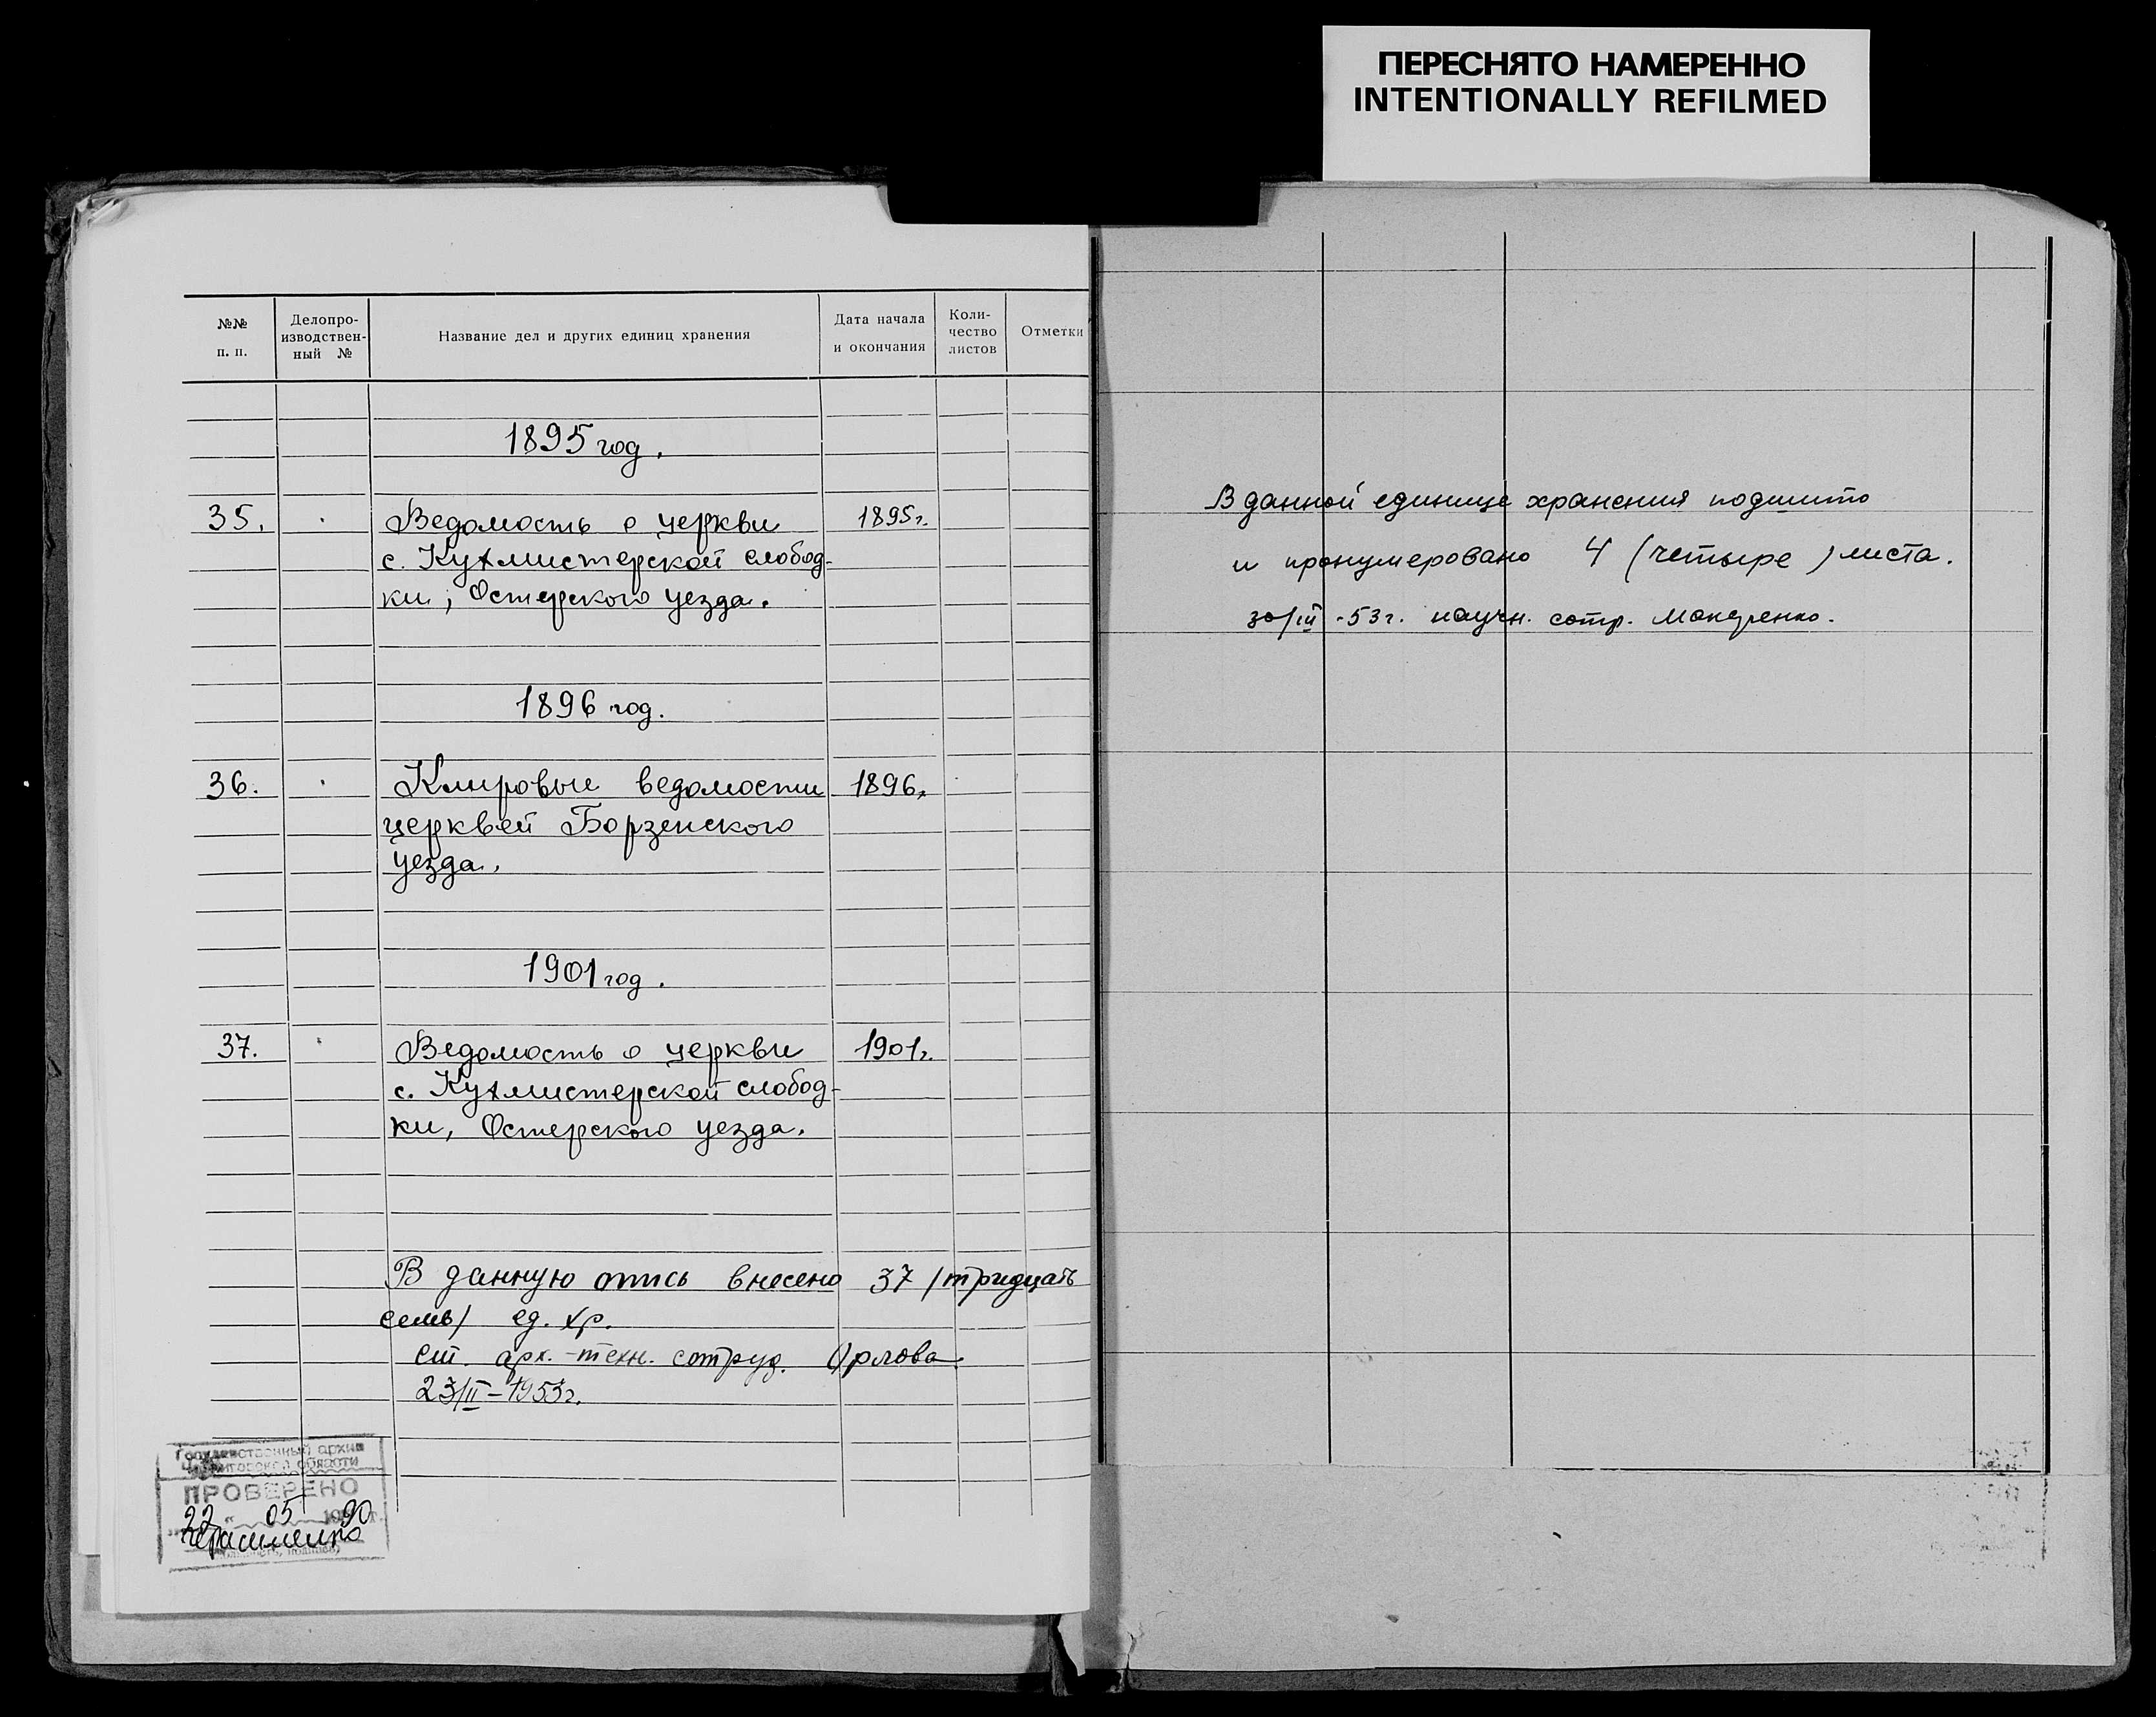 ПЕРЕСНЯТО НАМЕРЕННО
INTENTIONALLY REFILMED
№№ п. п.
Делопро-
изводствен-
ный №
Название дел и других единиц хранения
Дата начала
и окончания
Коли-
чество
листов
Отметки
1895 год.
35. Ведомость о церкви 1895 г.
с. Кухмистерской слобод-
ки, Остерского уезда.
1896 год.
36. Клировые ведомости 1896 г.
церквей Борзенского
уезда.
1901 год.
37. Ведомость о церкви 1901 г.
с. Кухмистерской слобод-
ки, Остерского уезда.
В данную опись внесено 37 /тридцать
семь/ ед. хр.
ст. арх.-техн. сотруд. Орлова
23/II-1953г.
Государственный архив
Черниговской области
ПРОВЕРЕНО
22 " 05 1990 г.
Герасименко
В данной единице хранения подшито
и пронумеровано 4 (четыре) листа.
30/III-53г. научн. сотр. Макаренко.